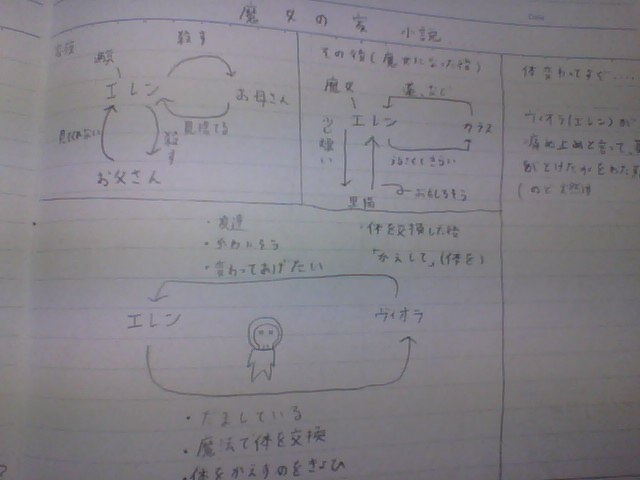 魔女の家 小説
Date
殺す
エレン
お母さん
見捨てる
見てくれない
殺す
お父さん
その後(魔女になった後)
魔女
エレン
少し嫌い
黒猫
おもしろそう
体変わってすぐ....
ヴィオラ(エレン)が
痛め止めと言って、
がとけたかをわたす
・友達
・かわいそう
・変わってあげたい
・体を交換した後
「かえして」(体を)
エレン
ヴィオラ
・だましている
・魔法で体を交換
・体をかえすのをきょひ